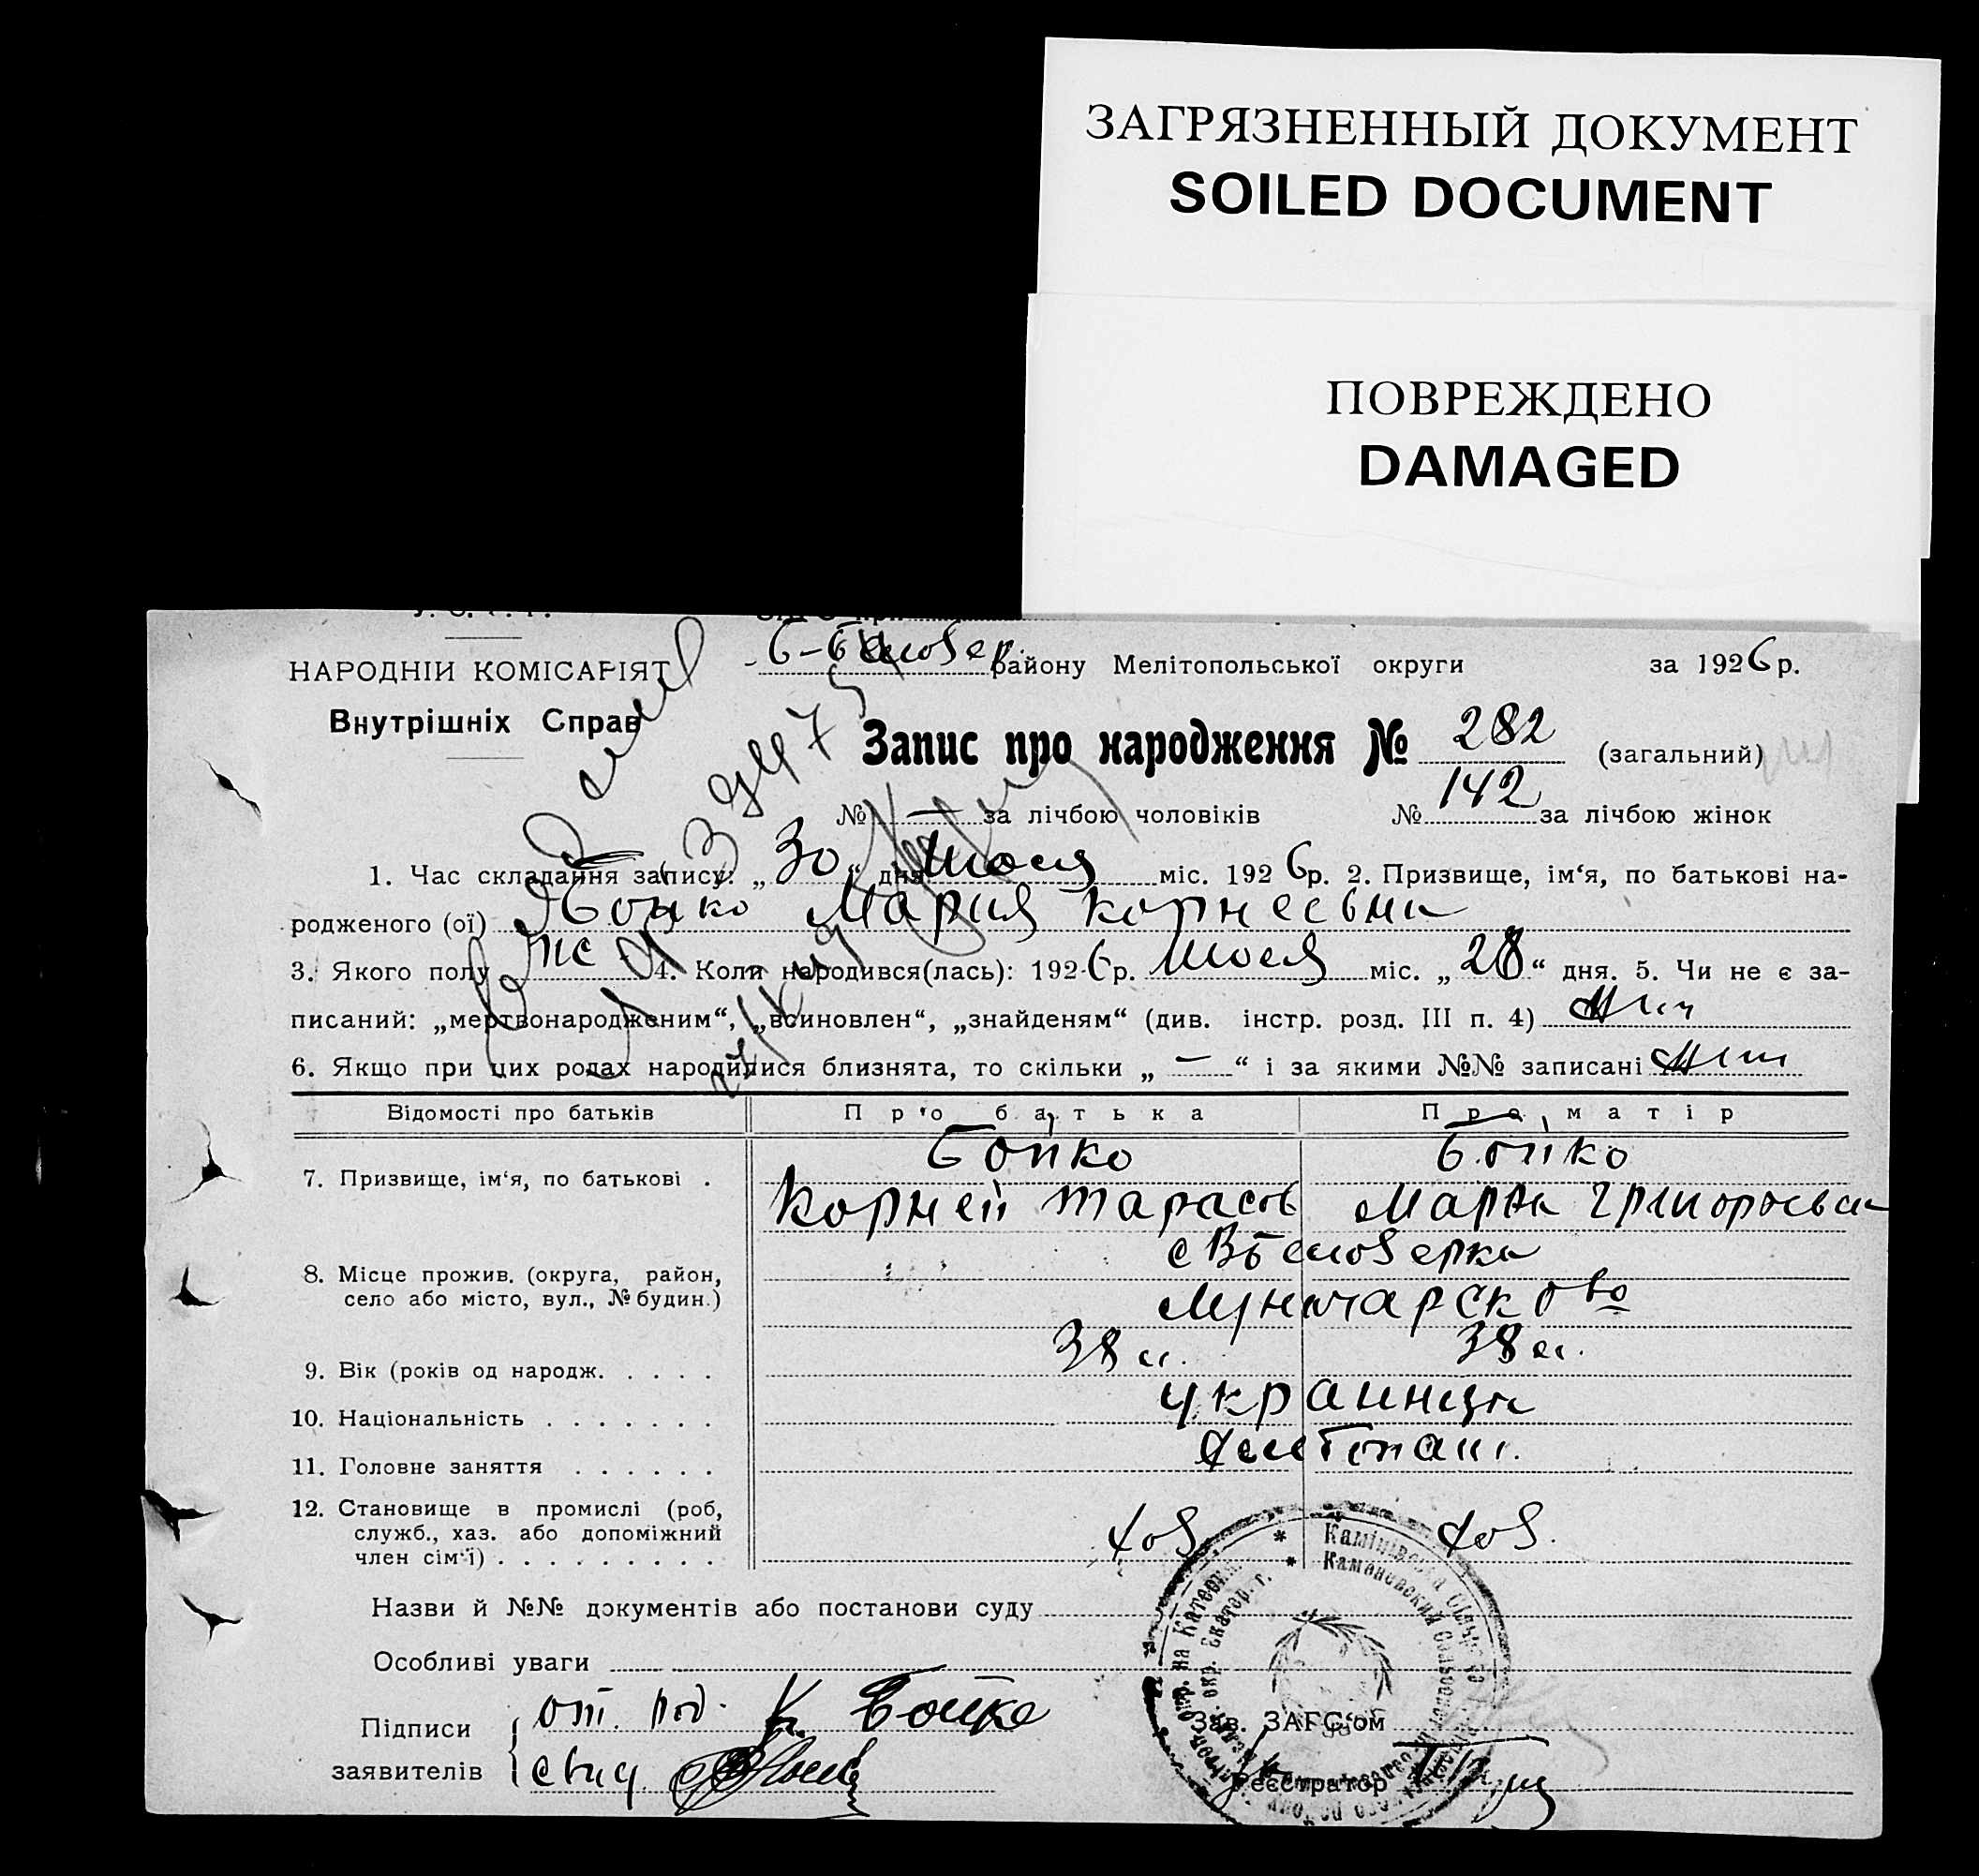 ЗАГРЯЗНЕННЫЙ ДОКУМЕНТ
SOILED DOCUMENT
ПОВРЕЖДЕНО
DAMAGED
НАРОДНІЙ КОМІСАРІЯТ
Внутрішніх Справ
району Мелітопольської округи за 1926р.
Запис про народження № 282 (загальний)
№ — за лічбою чоловіків № 142 за лічбою жінок
1. Час складання запису: „30“ дня Июля міс. 1926р. 2. Призвище, ім‘я, по батькові на-
родженого (ої) Бойко Мария Корнеевна
3. Якого полу ж 4. Коли народився(лась): 1926р. Июля міс. „28“ дня. 5. Чи не є за-
писаний: „мертвонародженим“, „всиновлен“, „знайденям“ (див. інстр. розд. III п. 4)
6. Якщо при цих родах народилися близнята, то скільки „—“ і за якими №№ записані
Відомості про батьків Про батька Про матір
7. Призвище, ім‘я, по батькові . Бойко Бойко
Корней Тарасов Марфа Григорьевна
8. Місце прожив. (округа, район,
село або місто, вул., № будин.)
9. Вік (років од народж. . . . . 38 л. 38 л.
10. Національність . . . . . . . украинцы
11. Головне заняття . . . . . .
12. Становище в промислі (роб,
служб., хаз. або допоміжний
член сім‘ї) . . . . . . . . .
Назви й №№ документів або постанови суду
Особливі уваги
Підписи заявителів
К. Бойко
свид
Зав. ЗАГС‘ом
Реєстратор